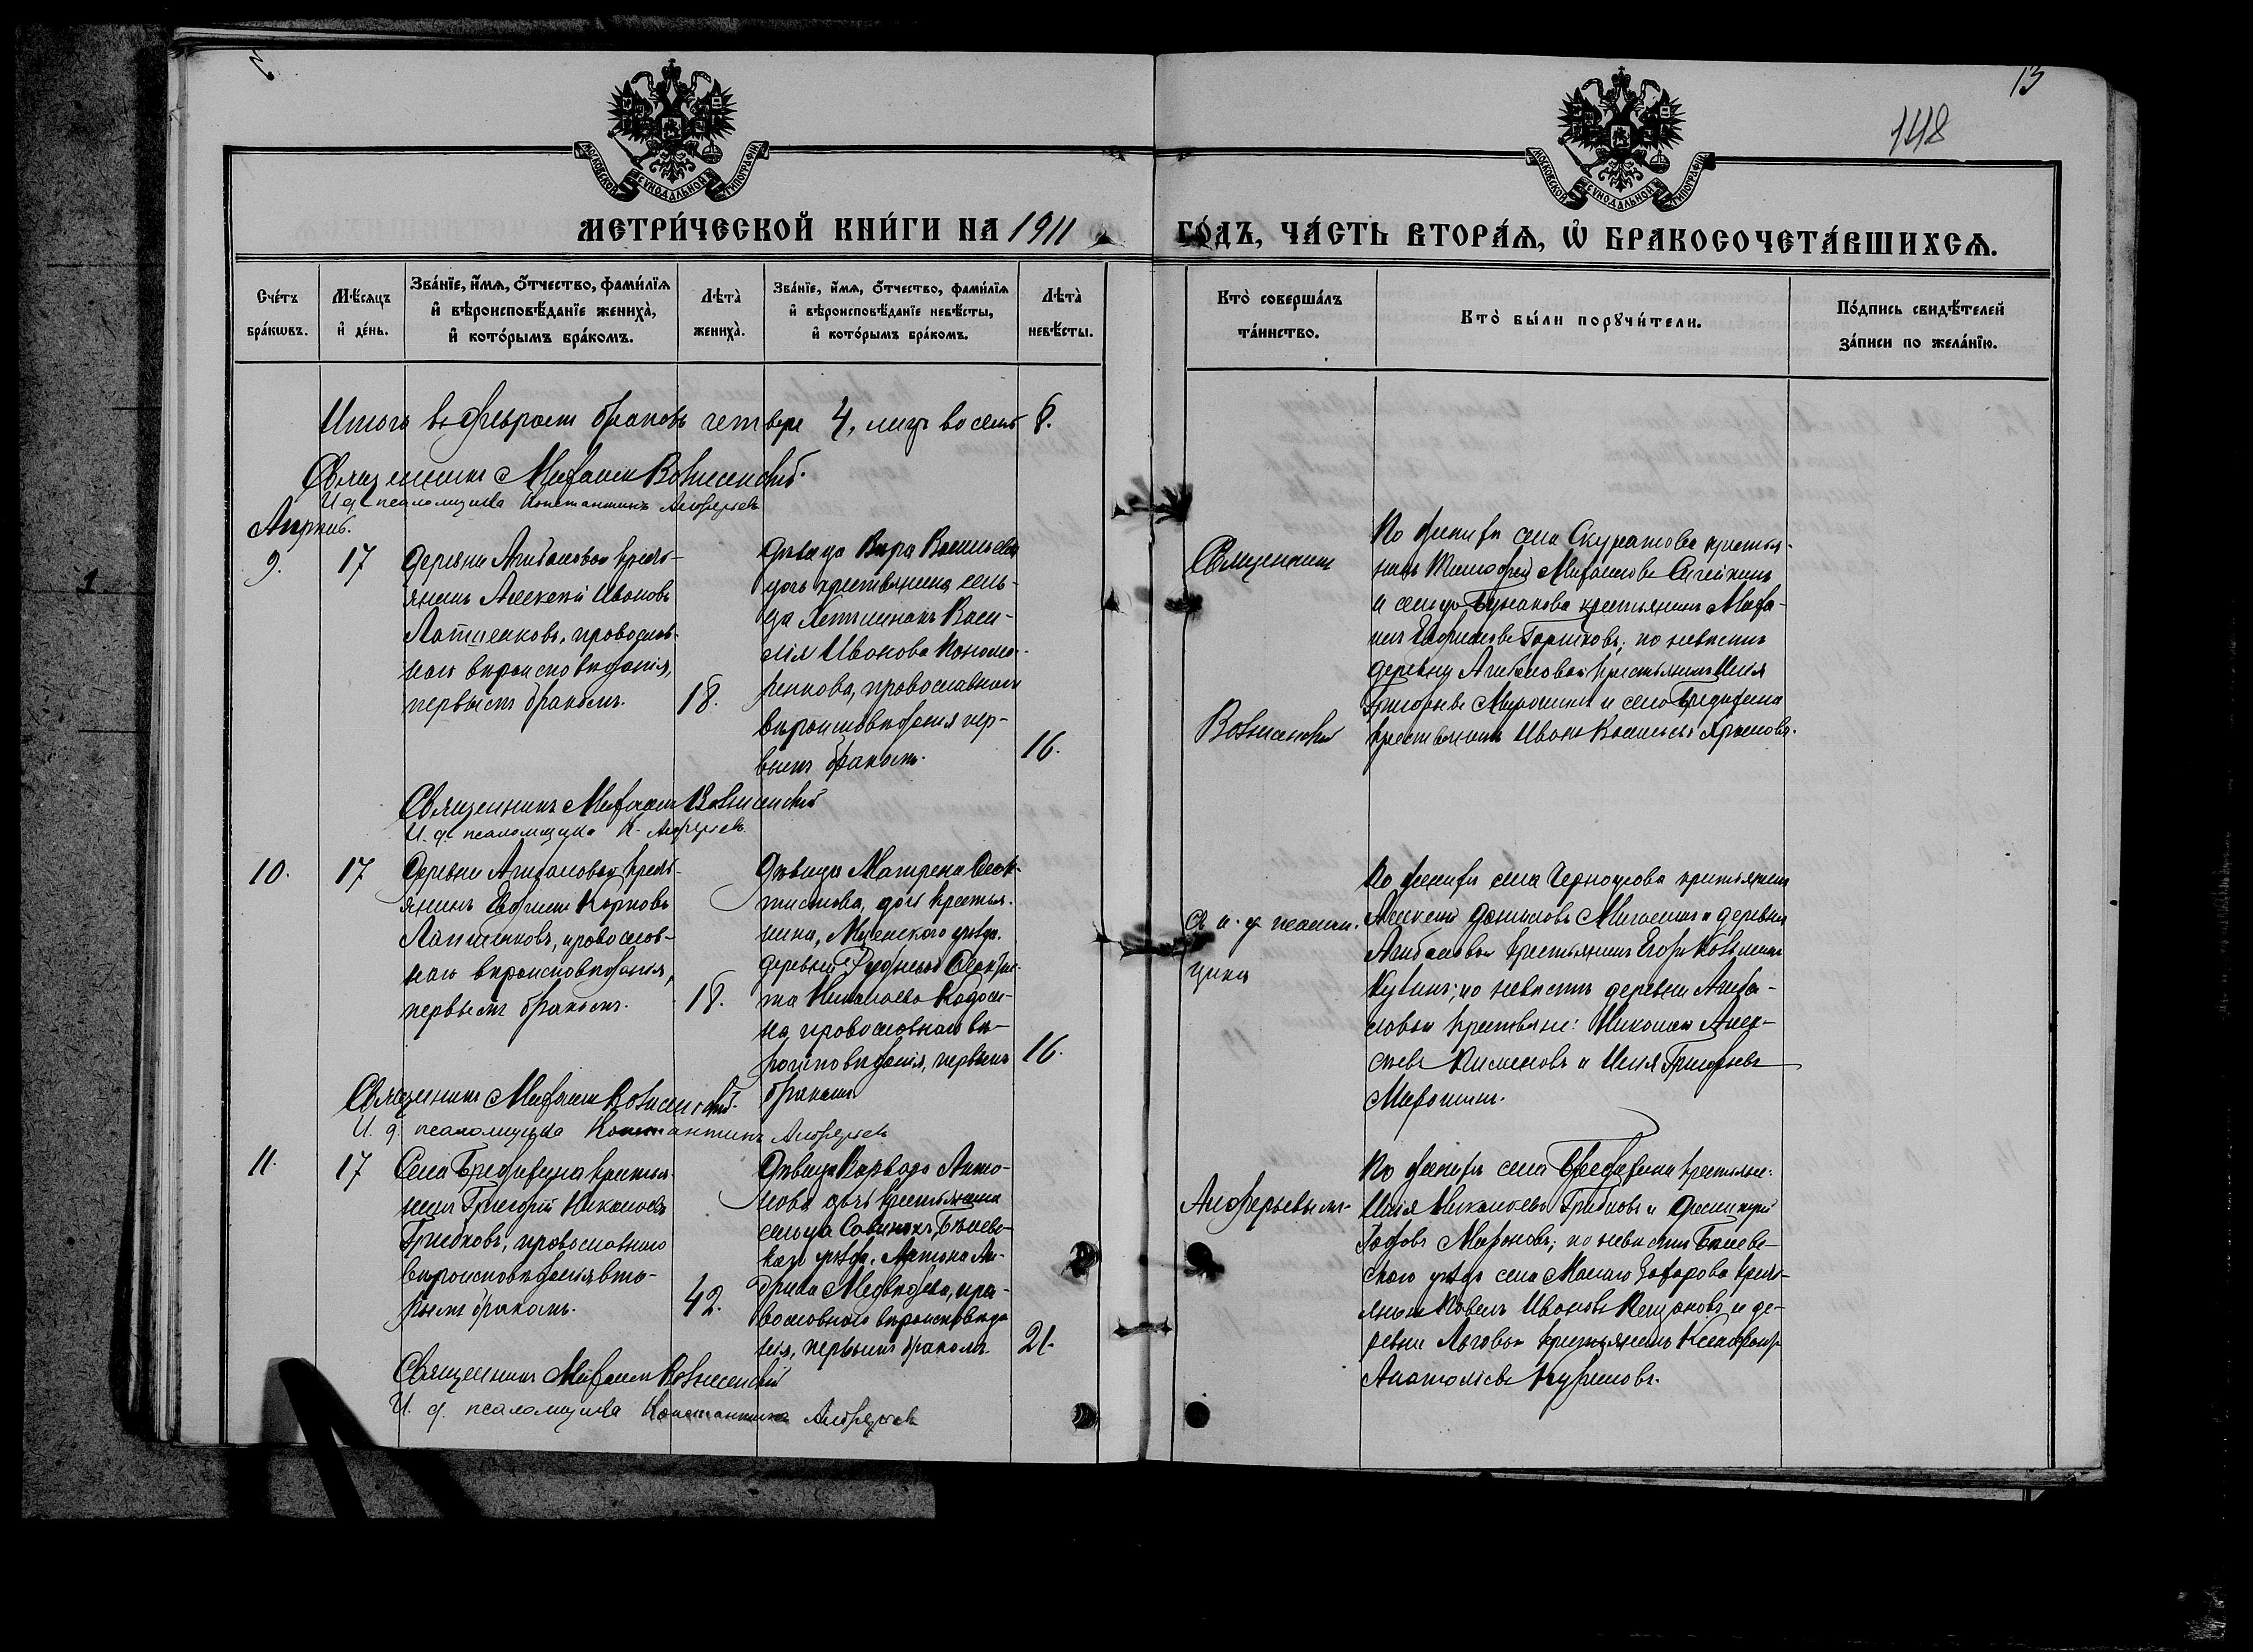 13
148
МОСКОВСКОЙ СѴНОДАЛЬНОЙ ТИПОГРАФІИ
МОСКОВСКОЙ СѴНОДАЛЬНОЙ ТИПОГРАФІИ
МЕТРИ́ЧЕСКОЙ КНИ́ГИ НА 1911
ГО́ДЪ, ЧА́СТЬ ВТОРА́Ѧ, Ѡ҆ БРАКОСОЧЕТА́ВШИХСѦ.
Сче́тъ бра́кѡвъ.
Мѣ́сяцъ и҆ де́нь.
Зва́нїе, и҆́мѧ, о҆́тчество, фами́лїѧ
и҆ вѣроисповѣ́данїе жениха̀,
и҆ кото́рымъ бра́комъ.
Лѣта̀ жениха̀.
Зва́нїе, и҆́мѧ, о҆́тчество, фами́лїѧ
и҆ вѣроисповѣ́данїе невѣ́сты,
и҆ кото́рымъ бра́комъ.
Лѣта̀ невѣ́сты.
Кто̀ соверша́лъ та́инство.
Кто̀ бы́ли порꙋчи́тели.
По́дпись свидѣ́телей
за́писи по жела́нїю.
Итого въ Февралѣ браковъ четвере 4, лицъ восемь 8.
Священникъ Михаилъ Вознесенскій.
И д псаломщика Константинъ Алферьевъ
Апрѣль.
9.
17
Деревни Агибаловой кресть-
янинъ Алексѣй Ивановъ
Лапшенковъ, православ-
наго вѣроисповѣданія,
первымъ бракомъ.
18.
Дѣвица Вѣра Васильева
дочь крестьянина сель-
ца Василія Иванова
ренкова, православнаго
вѣроисповѣданія пер-
вымъ бракомъ.
16.
Священникъ
Вознесенскій
По женихѣ села Скуратова крестья-
нинъ Тимофей Михаиловъ
и сельца крестьянинъ Миха-
илъ по невѣстѣ
деревни Агибаловой крестьянинъ Илія
Григорьевъ и села Бредихина
крестьянинъ Иванъ Васильевъ
Священникъ Михаилъ Вознесенскій
И. д. псаломщика К. Алферьевъ
10.
17
Деревни Агибаловой кресть-
янинъ Карповъ
Лапшенковъ, православ-
наго вѣроисповѣданія,
первымъ бракомъ.
18.
Дѣвица Матрена Феок-
тистова, дочь крестья-
нина, Мценскаго уѣзда.
деревни Феоктис-
та Николаева
на православнаго вѣ-
роисповѣданія, первымъ
бракомъ
16.
съ и. д. псалом-
щика
По женихѣ села Черноусова крестьянинъ
Алексѣй и деревни
Агибаловой крестьянинъ Егоръ
по невѣстѣ деревни Агиба-
ловой крестьяне: Николай Алек-
сѣевъ и Илія Григорьевъ
Священникъ Михаилъ Вознесенскій.
И. д. псаломщика Константинъ Алферьевъ
11.
17
Села Бредихина крестья-
нинъ Григорій Николаевъ
Грибковъ, православнаго
вѣроисповѣданія вто-
рымъ бракомъ.
42.
Дѣвица Варвара Анто-
нова дочь крестьянина
сельца Бѣлевс-
каго уѣзда. Антона Ан-
дреева Медвѣдева, пра-
вославнаго вѣроисповѣда
нія, первымъ бракомъ
21.
Алферьевымъ.
По женихѣ села Бредихина крестьяне:
Илія Николаевъ Грибковъ и Димитрій
по невѣстѣ Бѣлев-
скаго уѣзда села Малаго Захарова кресть-
янинъ Павелъ Ивановъ и де-
ревни Льговой крестьянинъ
Анатоліевъ
Священникъ Михаилъ Вознесенскій
И. д. псаломщика Константинъ Алферьевъ